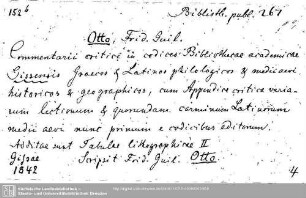 152⁶ Biblioth. publ. 267
Otto, Frid. Guil.
Commentarii critici in codices Bibliothecae academicae
Gissensis Graecos & Latinos philologicos & medii aevi
historicos & geographicos, cum Appendice critica varia-
rum lectionum & quorundam carminum Latinorum
medii aevi nunc primum e codicibus editorum.
Additae sunt Tabulae lithographicae II
Gissae Scripsit Frid. Guil. Otto
1842 4